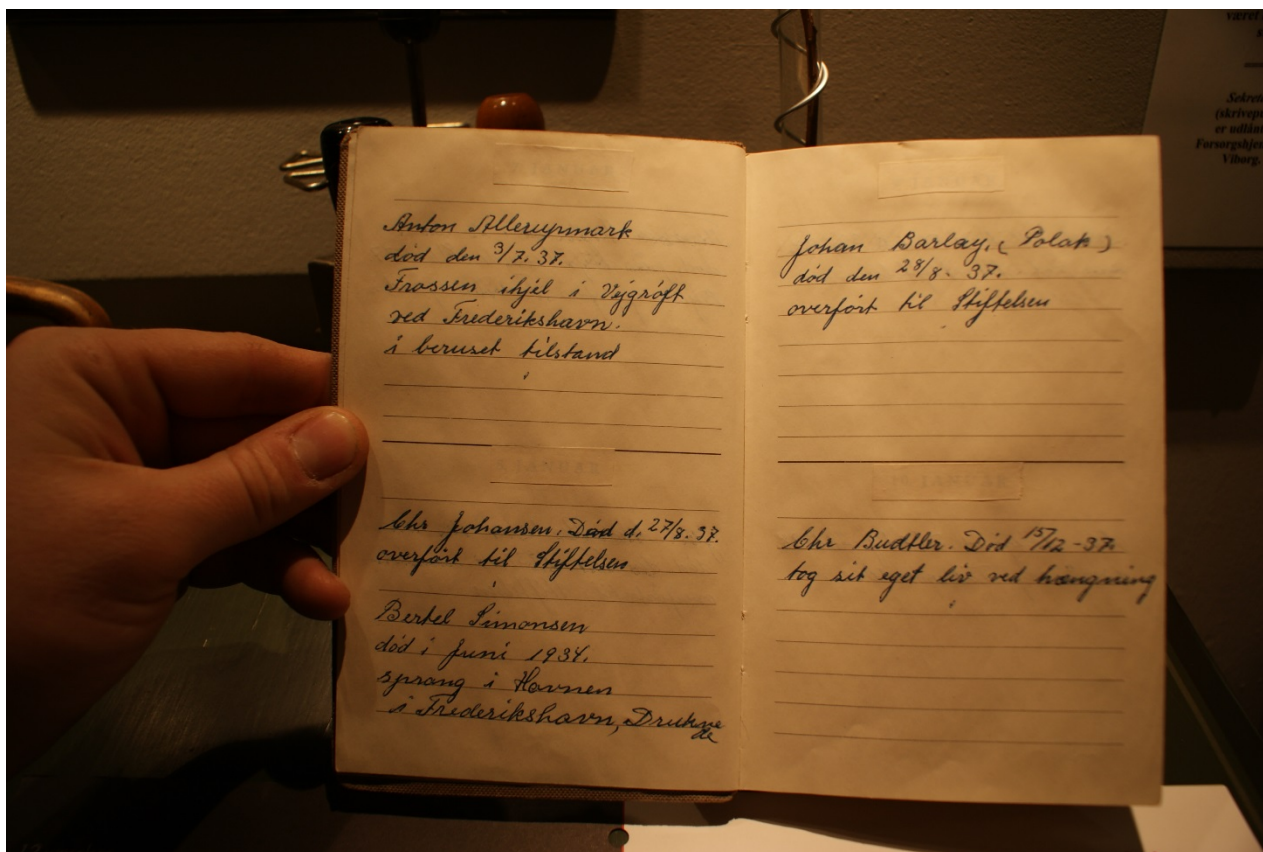 Anton Allerupmark
død den 3/7. 37.
Frossen ihjel i Vejgrøft
ved Frederikshavn.
i beruset tilstand
Chr Johansen. Død d. 27/8. 37.
overført til Stiftelsen
Bertel Simonsen
død i Juni 1934.
sprang i Havnen
i Frederikshavn, Druknede
Johan Barlay. (Polak)
død den 28/8. 37.
overført til Stiftelsen
JANUAR
Chr Budtler. Død 15/12-37.
tog sit eget liv ved hængning
været
Sekret
(skrivep
er udlån
Forsorgshjem
Viborg.